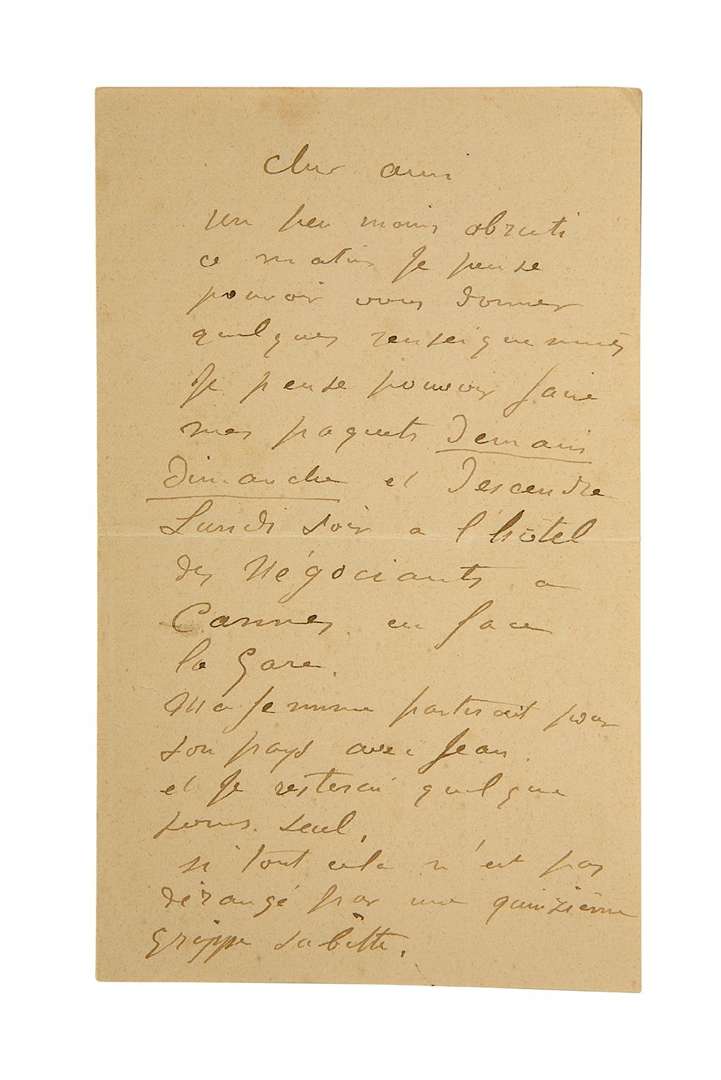 Cher ami
un peu moins abruti
ce matin je pense
pouvoir vous donner
quelques renseignements
Je pense pouvoir faire
mes paquets demain
dimanche et descendre
Lundi soir a l'hôtel
des Négociants a
Cannes en face
la Gare.
Ma femme partirait pour
son pays avec Jean.
et je resterai quelque
jours seul,
si tout cela n'est pas
dérangé par une quinzième
grippe